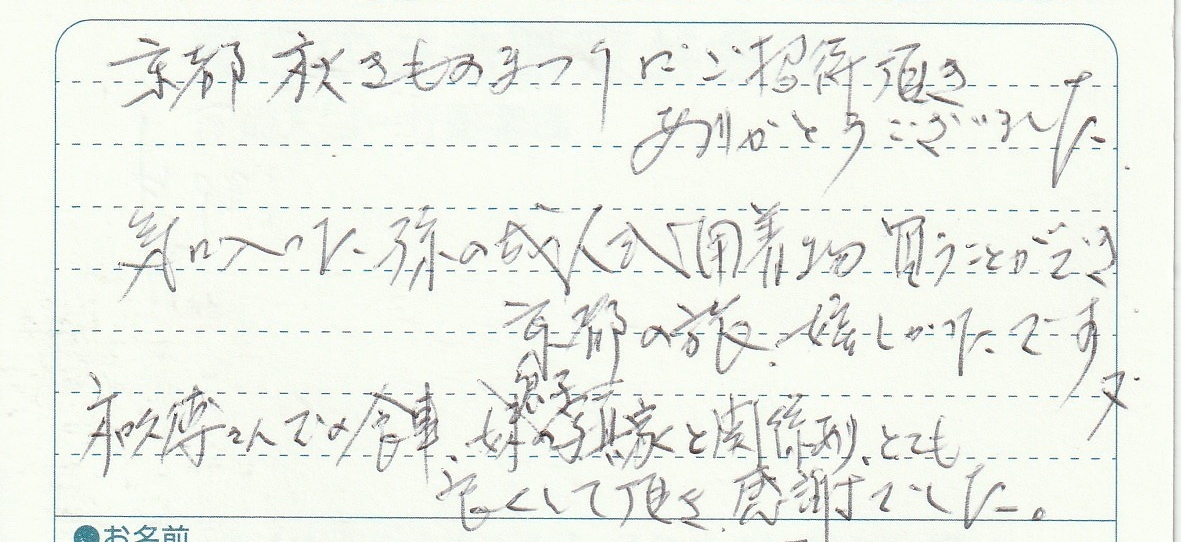 京都 秋きものまつりにご招待頂き
ありがとうございました
気に入った孫の成人式用着物買うことができ
京都の旅、嬉しかったです
息子
さんでの食事、嫁の実家と関係あり、とても
良くして頂き、感謝でした。
●お名前